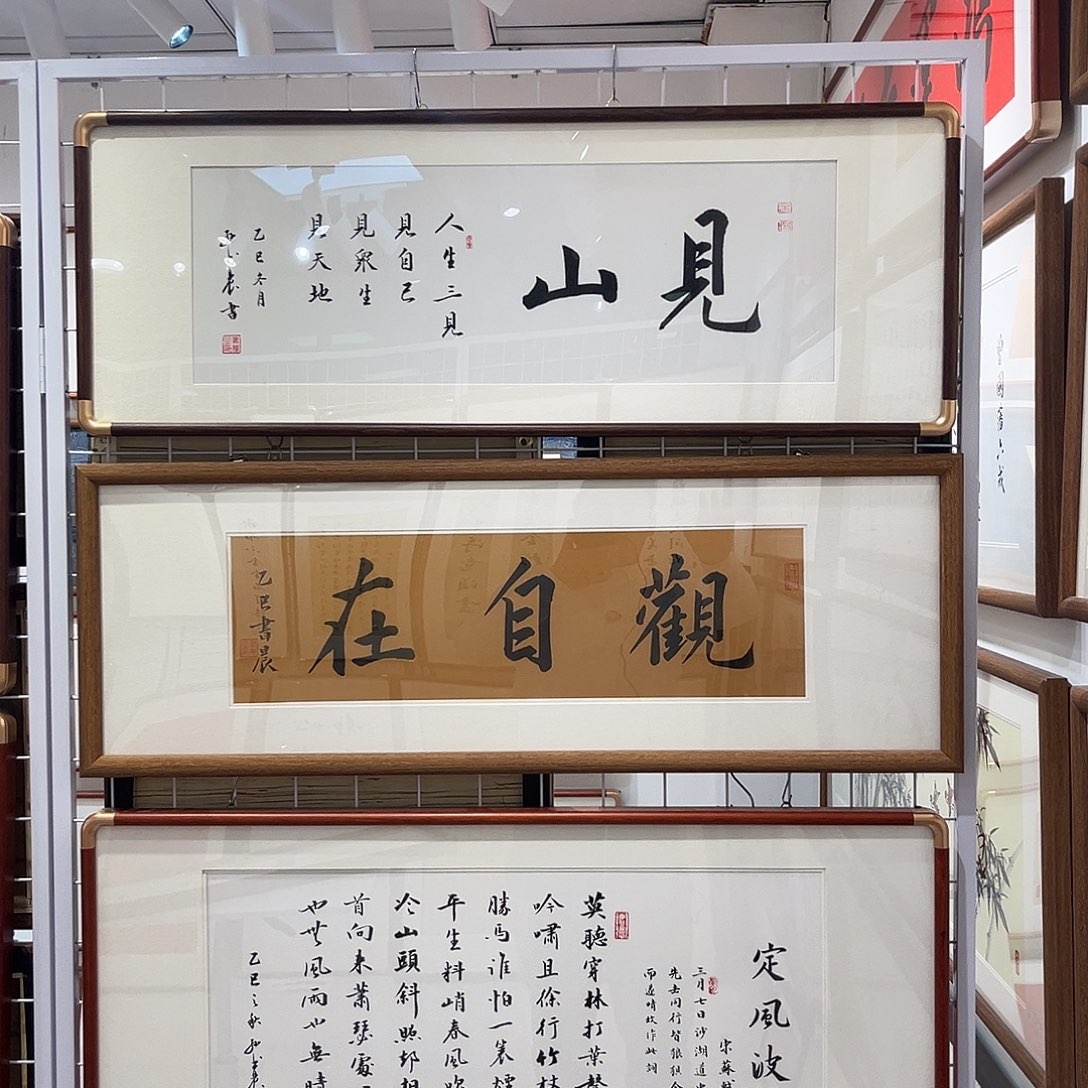 見山
人生三見
見自己
見眾生
見天地
乙巳冬月
書
觀自在
乙巳書晨
定風波
宋蘇軾
三月七日沙湖道中
先去同行皆狼狽余
而遂晴故作此詞
莫聽穿林打葉聲
吟嘯且徐行竹杖
勝馬誰怕一蓑煙
平生料峭春風吹
冷山頭斜照却相
首向來蕭瑟處
也無風雨也無晴
乙巳之秋
曾國藩六戒